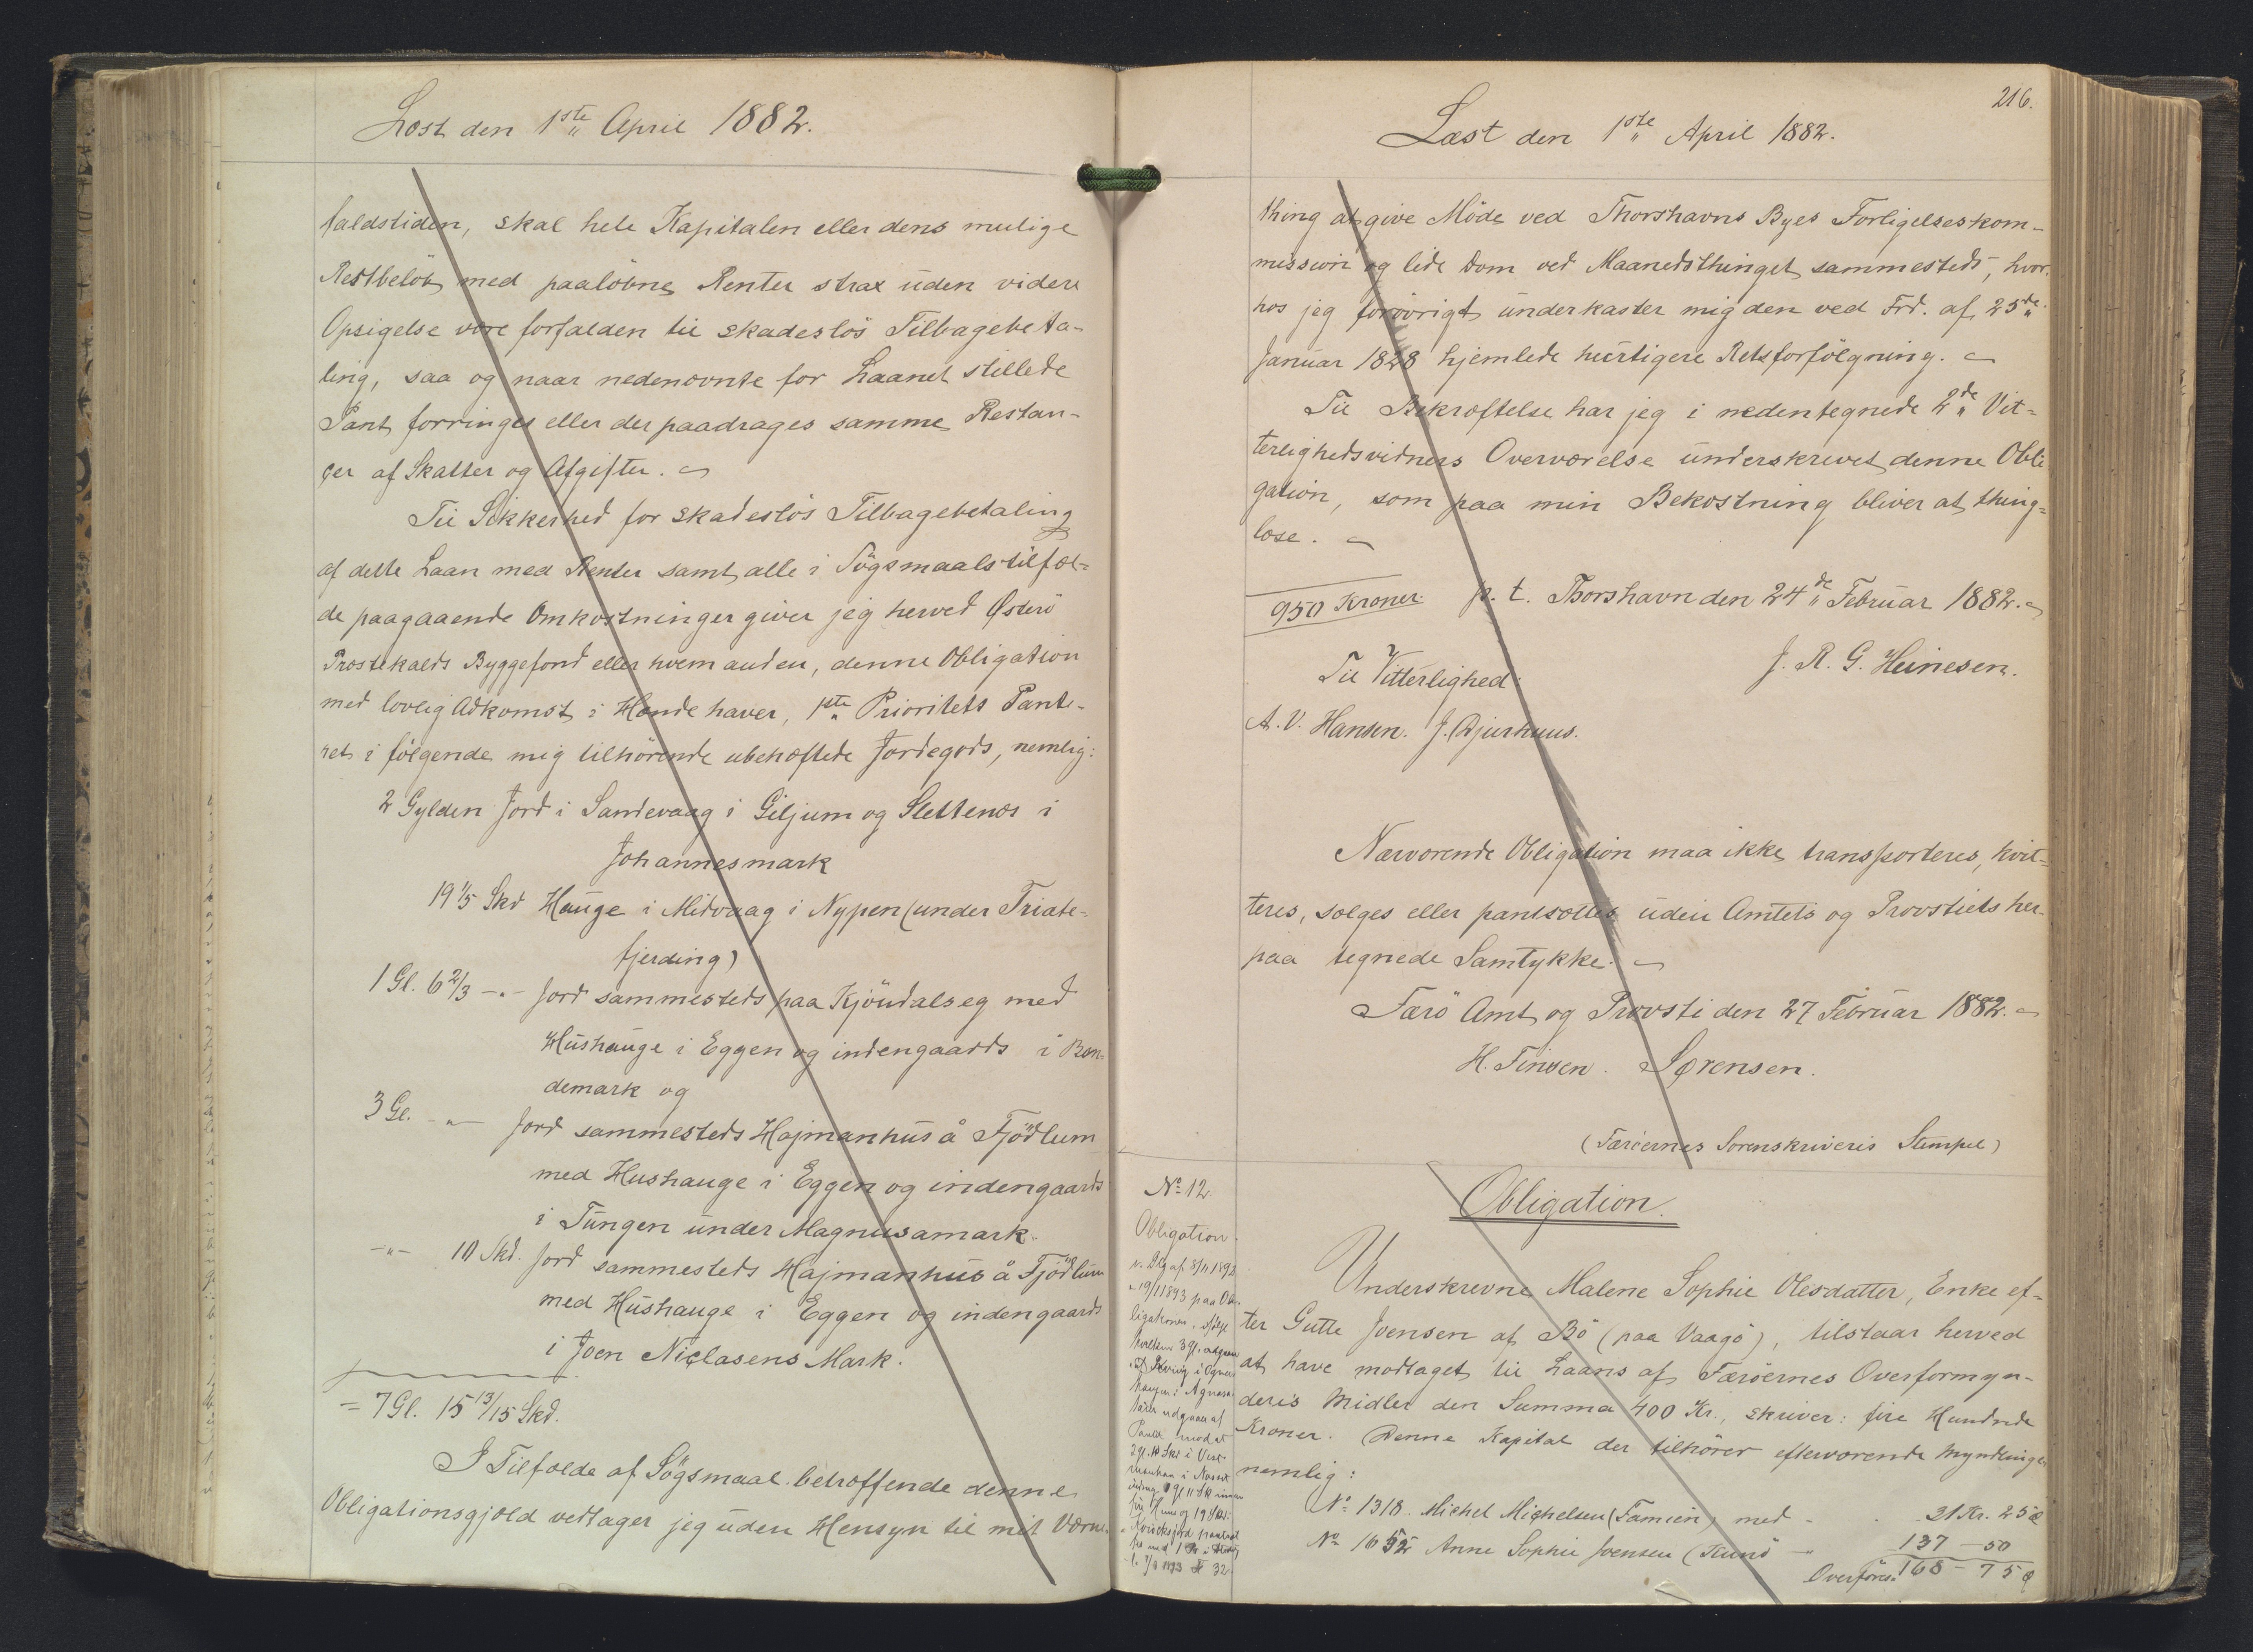 Læst den 1ste April 1882.
faldstiden, skal hele Kapitalen eller dens mulige
Restbelöb med paalöbne Renter strax uden videre
Opsigelse være forfalden til skadeslös Tilbagebeta-
ling, saa og naar nedennævnte for Laanet stillede
Pant forringes eller der paadrages samme Restan-
cer af Skatter og Afgifter.
Til Sikkerhed for skadeslös Tilbagebetaling
af dette Laan med Renter samt alle i Sögsmaalstilfæl-
de paagaaende Omkostninger giver jeg herved Østerö
Præstekalds Byggefond eller hvem anden, denne Obligation
med lovlig Adkomst i Hænde haver, 1ste Prioritets Pante-
ret i fölgende mig tilhörende ubehæftede Jordegods, nemlig:
2 Gylden Jord i Sandevaag i Giljum og Slettenæs i
Johannesmark
19 1/5 Skd Hauge i Midvaag i Nypen (under Triate-
fjerding)
1 Gl. 6 2/3 -"- Jord sammesteds paa Kjöndalseg med
Hushauge i Eggen og indengaards i Bon-
demark og
3 Gl. -"- Jord sammesteds Hajmanhus å Fjödlum
med Hushauge i Eggen og indengaards
i Tungen under Magnusamark.
-"- 10 Skd. Jord sammesteds Hajmanhus å Fjödlum
med Hushauge i Eggen og indengaards
i Joen Niclasens Mark.
= 7 Gl. 15 13/15 Skd.
I Tilfælde af Sögsmaal betræffende denne
Obligationsgjæld vedtager jeg uden Hensyn til mit Værne-
216.
Læst den 1ste April 1882.
thing at give Möde ved Thorshavns Byes Forligelseskom-
mission og lide Dom ved Maanedsthinget sammesteds, hvor-
hos jeg forövrigt underkaster mig den ved Frd. af 25de
Januar 1828 hjemlede hurtigere Retsforfölgning.
Til Bekræftelse har jeg i nedentegnede 2de Vit-
terlighedsvidners Overværelse underskrevet denne Obli
gation, som paa min Bekostning bliver at thing-
læse.
950 Kroner. p. t. Thorshavn den 24de Februar 1882.
J. R. G. Heinesen.
Til Vitterlighed:
A. V. Hansen. J. Djurhuus.
Nærværende Obligation maa ikke transporteres, kvit-
teres, sælges eller pantsættes uden Amtets og Provstiets her-
paa tegnede Samtykke.
Færö Amt og Provsti den 27 Februar 1882.
H. Finsen. Sørensen.
(Færöernes Sorenskriveris Stempel)
No 12
Obligation.
Obligation.
Underskrevne Malene Sophie Olesdatter, Enke ef-
ter Gutte Joensen af Bö (paa Vaagö), tilstaar herved
at have modtaget til Laans af Færöernes Overformyn-
deris Midler den Summa 400 Kr., skriver: fire Hundrede
Kroner. Denne Kapital der tilhörer efterværende Myndlinge
nemlig:
No 1318. Michel Michelsen (Famien) med - 31 Kr. 25 Ø
No 1652 Anne Sophie Joensen (Kunö -"- 137 - 50
Overföres 168 - 75 Ø